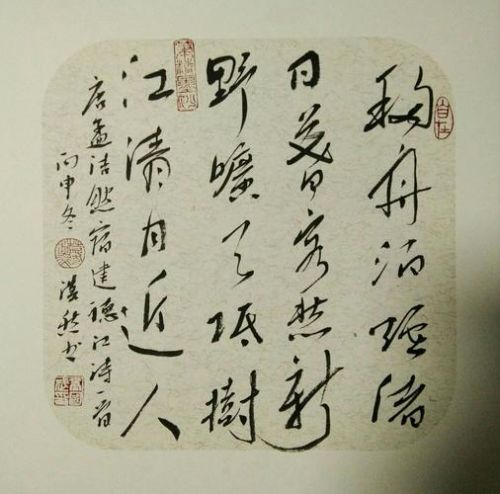 移舟泊烟渚
日暮客愁新
野旷天低树
江清月近人
唐孟浩然宿建德江诗一首
丙申冬
书
自在